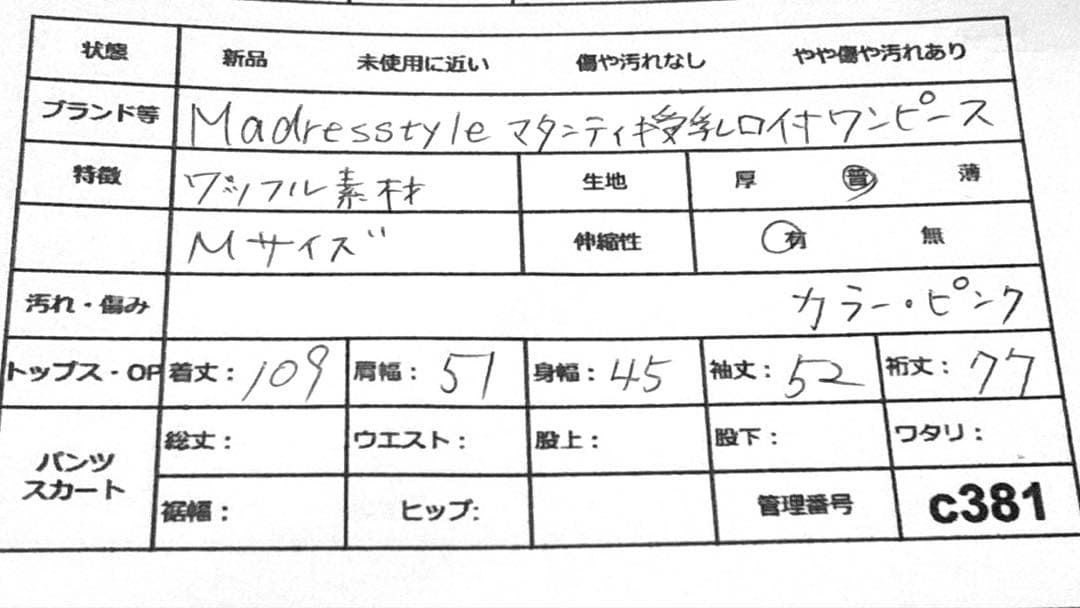 状態 新品 未使用に近い 傷や汚れなし やや傷や汚れあり
ブランド等 Madresstyle マタニティ授乳口付ワンピース
特徴 ワッフル素材 生地 厚 普 薄
Mサイズ 伸縮性 有 無
汚れ・傷み カラー・ピンク
トップス・OP 着丈：109 肩幅：51 身幅：45 袖丈：52 裄丈：77
パンツ スカート 総丈： ウエスト： 股上： 股下： ワタリ：
裾幅： ヒップ: 管理番号 c381